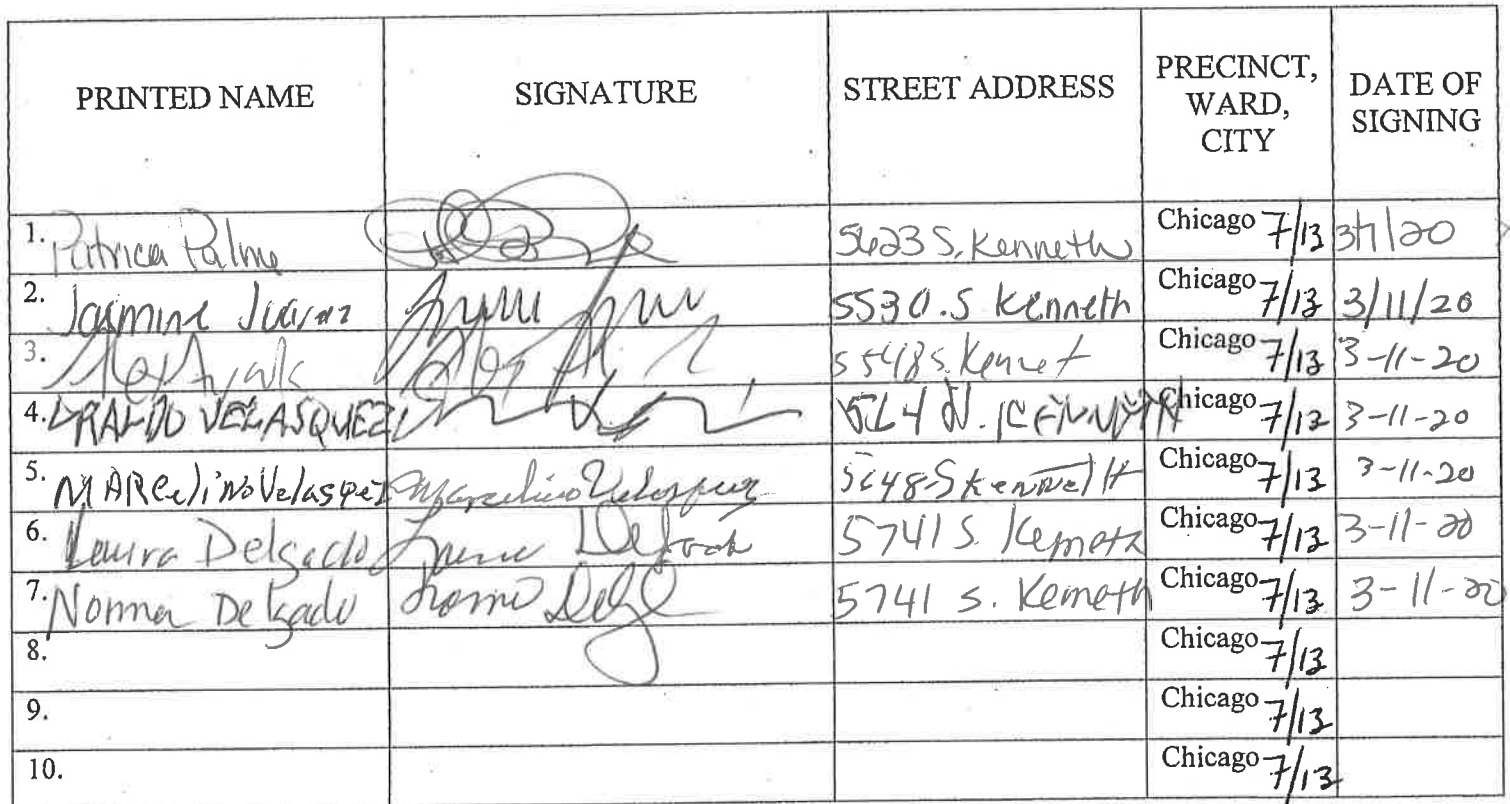 PRINTED NAME SIGNATURE STREET ADDRESS PRECINCT, WARD, CITY DATE OF SIGNING
1. Patrica Palma 5623 S. Kenneth Chicago 7/13 3/11/20
2. Jasmine Juarez 5530 .S Kenneth Chicago 7/13 3/11/20
3. Alex Ayala 5548 S. Kennet Chicago 7/13 3-11-20
4. VELASQUEZ Chicago 7/13 3-11-20
5. MARCeliNo Velasqez Marcelino Velasquez 5648 S Chicago 7/13 3-11-20
6. Laura Delgado 5741 S. Chicago 7/13 3-11-20
7. Norma Delgado 5741 S. Chicago 7/13 3-11-20
8. Chicago 7/13
9. Chicago 7/13
10. Chicago 7/13